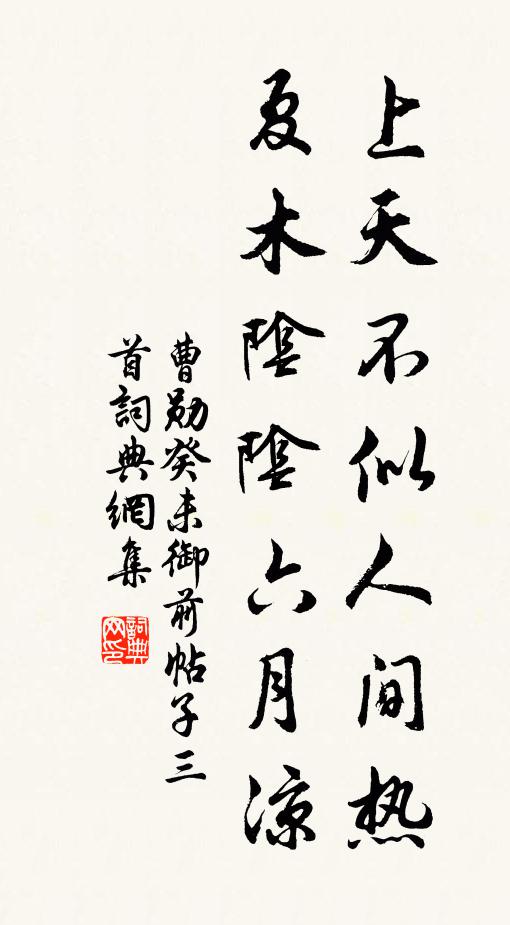 上天不似人间热
夏木陰陰六月凉
曹勛癸未御前帖子三
首詞典網集
詞典
网印